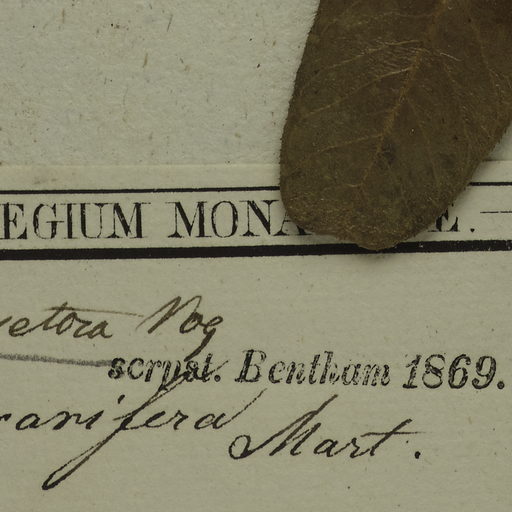 EGIUM MONA E.
etora Vog
scrpst. Bentham 1869.
ranifera Mart.